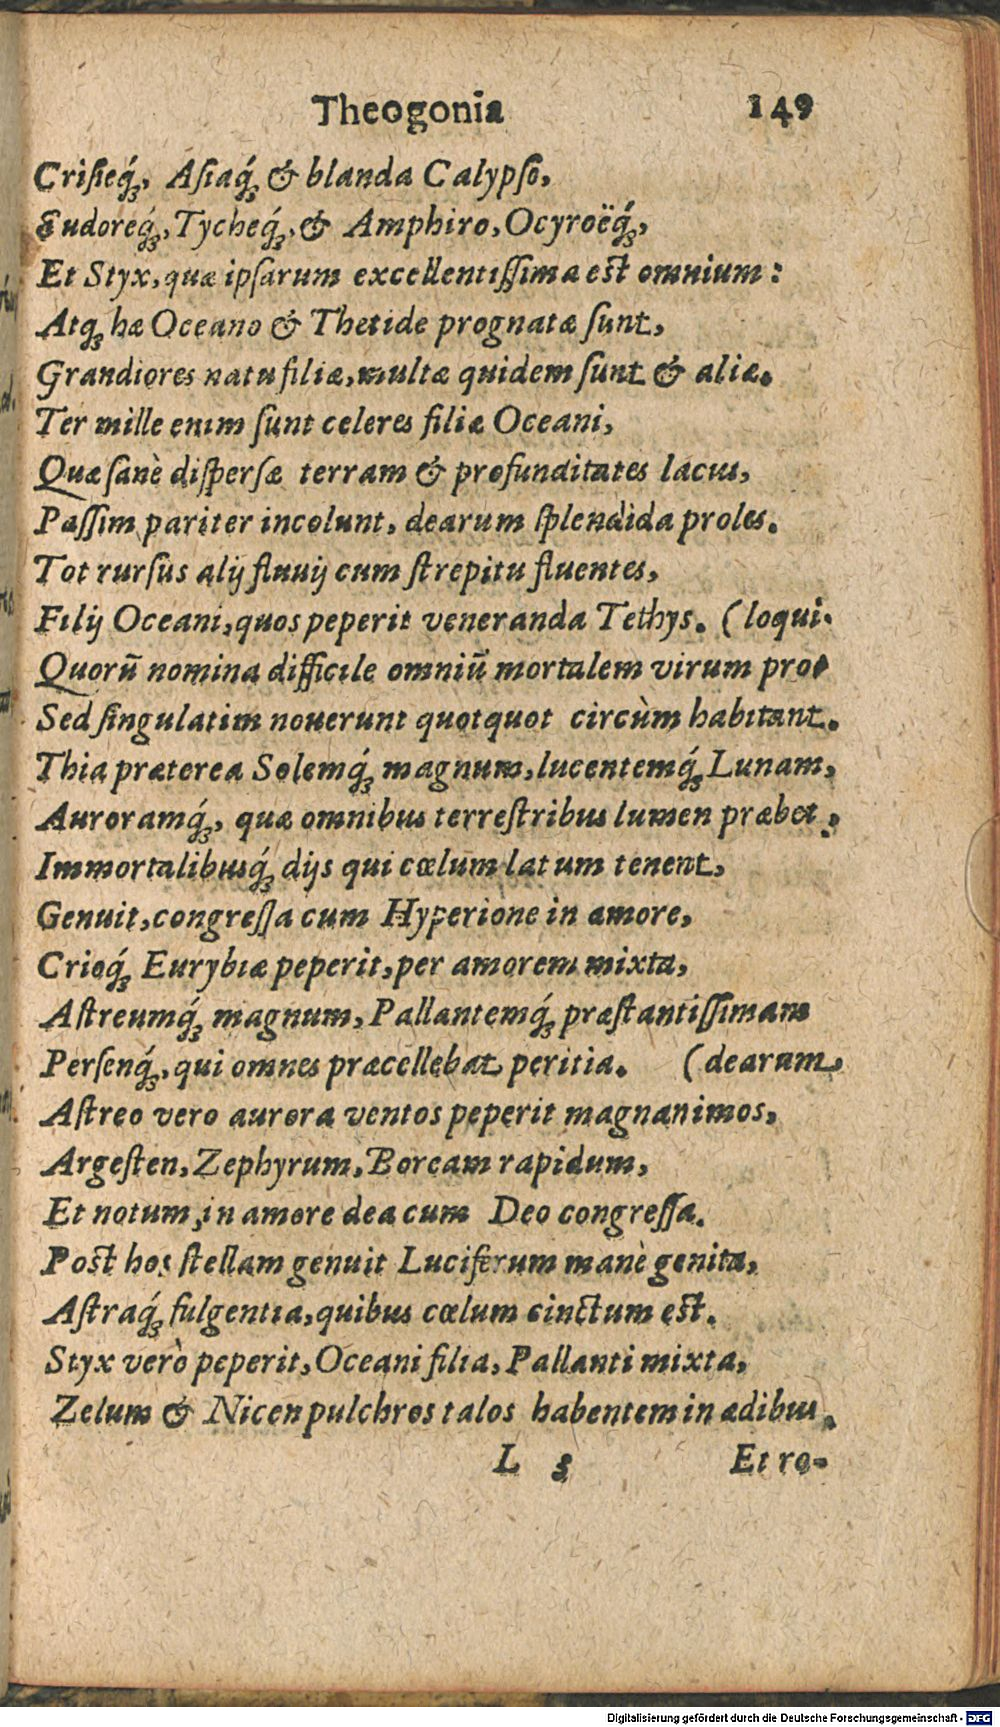 Theogonia 149
Criſieq́;, Aſiaq́; & blanda Calypſo,
Eudoreq́;, Tycheq́;, & Amphiro, Ocyroëq́;,
Et Styx, quæ ipſarum excellentiſſima eſt omnium:
Atq; hæ Oceano & Thetide prognatæ ſunt,
Grandiores natu filiæ, multæ quidem ſunt & aliæ.
Ter mille enim ſunt celeres filiæ Oceani,
Quæ ſanè diſperſæ terram & profunditates lacus,
Paſſim pariter incolunt, dearum ſplendida proles.
Tot rurſus alij fluuij cum ſtrepitu fluentes,
Filij Oceani, quos peperit veneranda Tethys. (loqui.
Quorũ nomina difficile omniũ mortalem virum pro-
Sed ſingulatim nouerunt quotquot circùm habitant.
Thia præterea Solemq́; magnum, lucentemq́; Lunam,
Auroramq́;, quæ omnibus terreſtribus lumen præbet,
Immortalibusq́; dijs qui cœlum latum tenent,
Genuit, congreſſa cum Hyperione in amore,
Crioq́; Eurybiæ peperit, per amorem mixta,
Aſtreumq́; magnum, Pallantemq́; præſtantiſſimam
Perſenq́;, qui omnes præcellebat peritia. (dearum
Aſtreo vero aurora ventos peperit magnanimos,
Argeſten, Zephyrum, Boream rapidum,
Et notum, in amore dea cum Deo congreſſa.
Poſt hos ſtellam genuit Luciferum manè genita,
Aſtraq́; fulgentia, quibus cœlum cinctum eſt.
Styx verò peperit, Oceani filia, Pallanti mixta,
Zelum & Nicen pulchros talos habentem in ædibus,
L 3 Et ro-
Digitalisierung gefördert durch die Deutsche Forschungsgemeinschaft - DFG